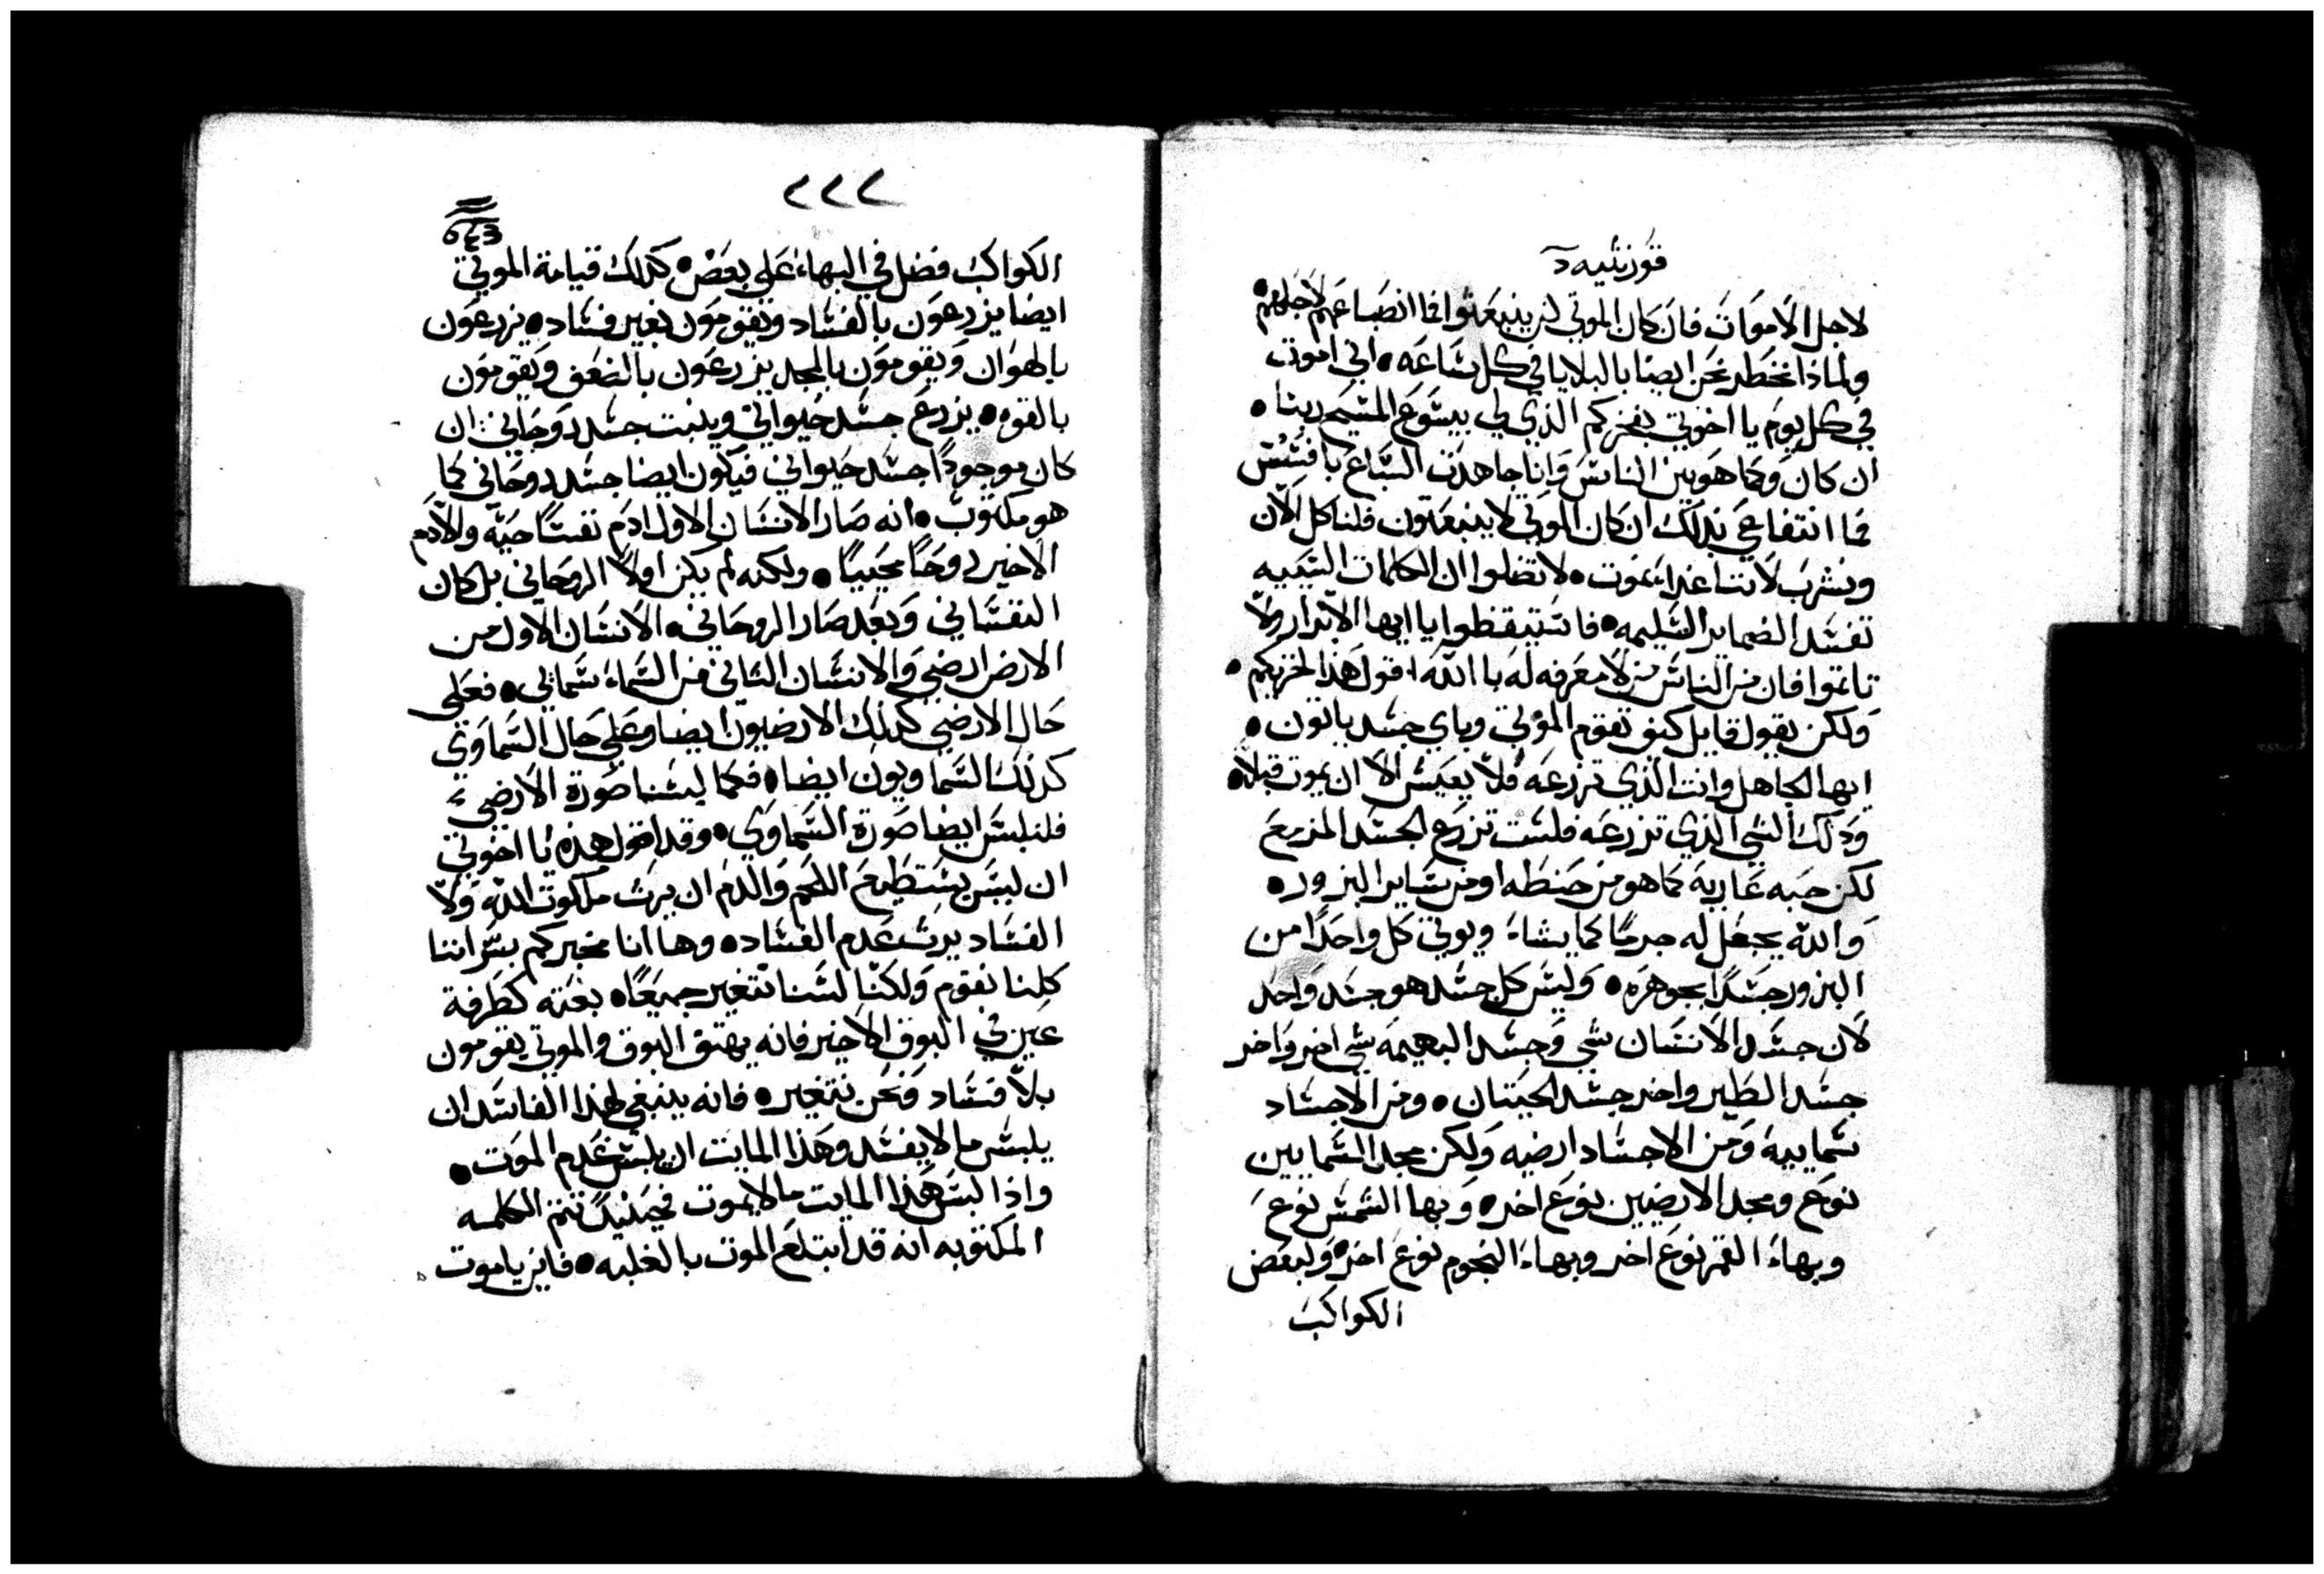 قورنثيه د
لاجل الاموات فان كان الموتي لن ينبعثوا فما انصباعهم لاجلهم
ولماذا نخطر نحن ايضا بالبلايا في كل ساعه • اني اموت
في كل يوم يا اخوتي بفخركم الذي لي بيسوع المسيح ربنا •
ان كان وكما هو بين الناس وانا جاهدت السباع بافسس
فما انتفاعي بذلك ان كان الموتي لا ينبعثون فلناكل الان
ونشرب لاننا غدا نموت • لا تضلوا ان الكلمات السييه
تفسد الضماير السليمه • فاستيقظوا يا ايها الابرار ولا
تاثموا فان من الناس من لا معرفه له بالله اقول هذا لخزيكم •
ولكن يقول قايل كيف تقوم الموتي وباي جسد ياتون •
ايها الجاهل وانت الذي تزرعه فلا يعيش الا ان يموت قبلا •
وذلك الشي الذي تزرعه فلست تزرع الجسد المزمع
لكن حبه عاريه كما هو من حنطه او من ساير البزور •
والله يجعل له جرمًا كما يشاء ويوتي كل واحدًا من
البزور جسدًا بجوهره • وليس كل جسد هو جسد واحد
لان جسد الانسان شي وجسد البهيمه شي اخر واخر
جسد الطير واخر جسد الحيتان • ومن الاجساد
سماييه ومن الاجساد ارضيه ولكن مجد السماييين
نوع ومجد الارضيين نوع اخر • وبها الشمس نوع
وبهاء القمر نوع اخر وبهاء النجوم نوع اخر • ولبعض
الكواكب
٢٢٢
الكواكب فضل في البهاء علي بعض • كذلك قيامة الموتي
ايضا يزرعون بالفساد ويقومون بغير فساد • يزرعون
بالهوان ويقومون بالمجد يزرعون بالضعف ويقومون
بالقوه • يزرع جسد حيواني وينبت جسد روحاني ان
كان موجودًا جسد حيواني فيكون ايضا جسد روحاني كما
هو مكتوب • انه صار الانسان الاول ادم نفسًا حيه والادم
الاخير روحًا محييًا • ولكنه لم يكن اولا الروحاني بل كان
النفساني وبعد صار الروحاني • الانسان الاول من
الارض ارضي والانسان الثاني من السماء سمايي • فعلي
حال الارضي كذلك الارضيون ايضا وعلي حال السماوي
كذلك السماويون ايضا • فكما لبسنا صورة الارضي
فلنلبس ايضا صورة السماوي • وقد اقول هذه يا اخوتي
ان ليس يستطيع اللحم والدم ان يرث ملكوت الله ولا
الفساد يرث عدم الفساد • وها انا مخبركم بسر اننا
كلنا نقوم ولكنا لسنا نتغير جميعًا • بغته كطرفة
عين في البوق الاخير فانه يهتف البوق والموتي يقومون
بلا فساد ونحن نتغير • فانه ينبغي لهذا الفاسد ان
يلبس ما لا يفسد وهذا المايت ان يلبس عدم الموت •
واذا لبس هذا المايت ما لا يموت فحينيذ تتم الكلمه
المكتوبه انه قد ابتلع الموت بالغلبه • فاين يا موت